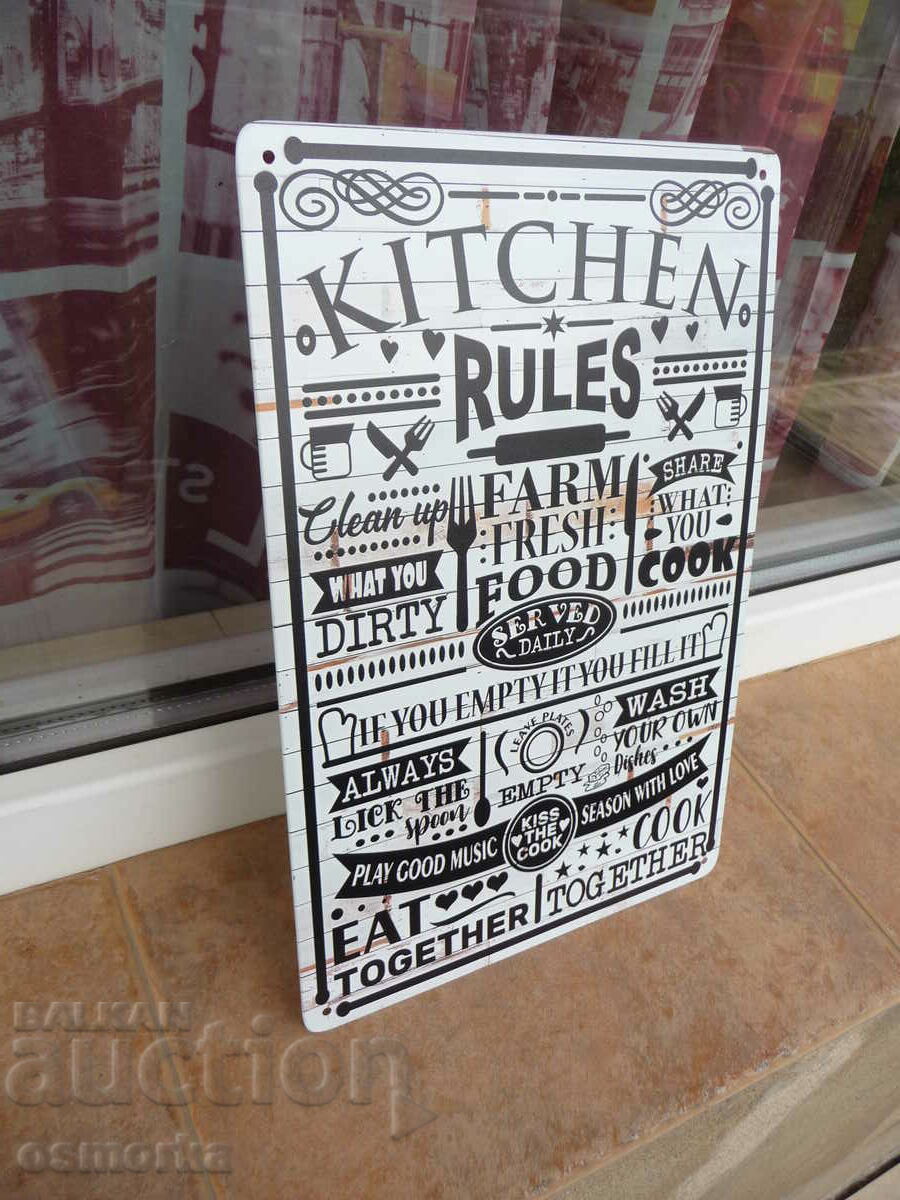 KITCHEN
RULES
Clean up
WHAT YOU
DIRTY
FARM
FRESH
FOOD
SERVED
DAILY
SHARE
WHAT
YOU
COOK
IF YOU EMPTY IT YOU FILL IT
ALWAYS
LICK THE
spoon
LEAVE PLATES
EMPTY
WASH
YOUR OWN
Dishes
PLAY GOOD MUSIC
KISS
THE
COOK
SEASON WITH LOVE
EAT
TOGETHER
COOK
TOGETHER
BALKAN
auction
osmorka